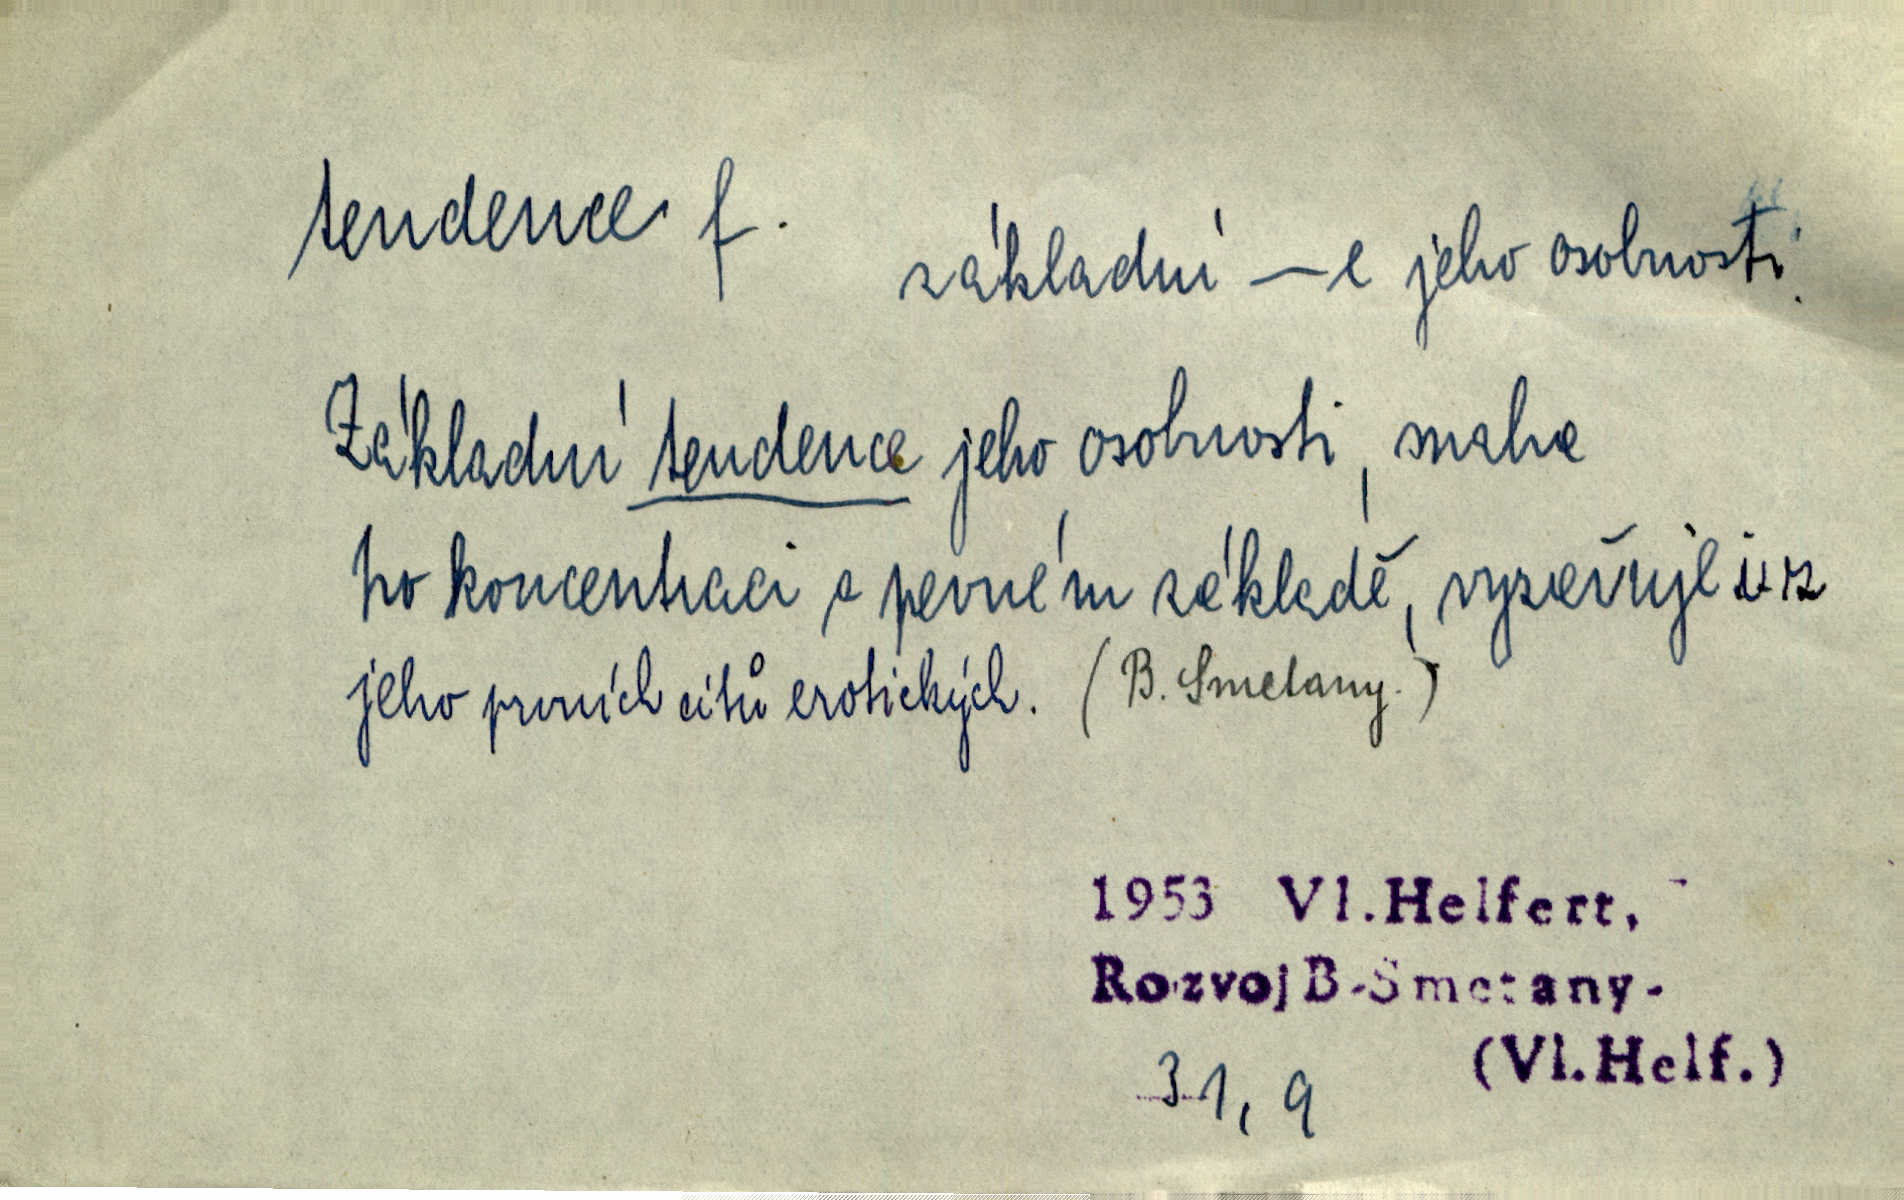 tendence f.
základní —e jeho osobnosti.
Základní tendence jeho osobnosti, snaha
po koncentraci a pevném základě, vyzařuje i z
jeho prvních citů erotických. (B. Smetany.)
1953 Vl. Helfert,
Rozvoj B. Smetany.
(Vl. Helf.)
31, 9